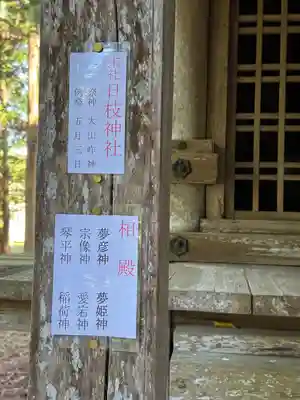 末社日枝神社
一祭神 大山咋神
一例祭 五月三日
相殿
夢彦神 夢姫神
宗像神 愛宕神
琴平神 稲荷神